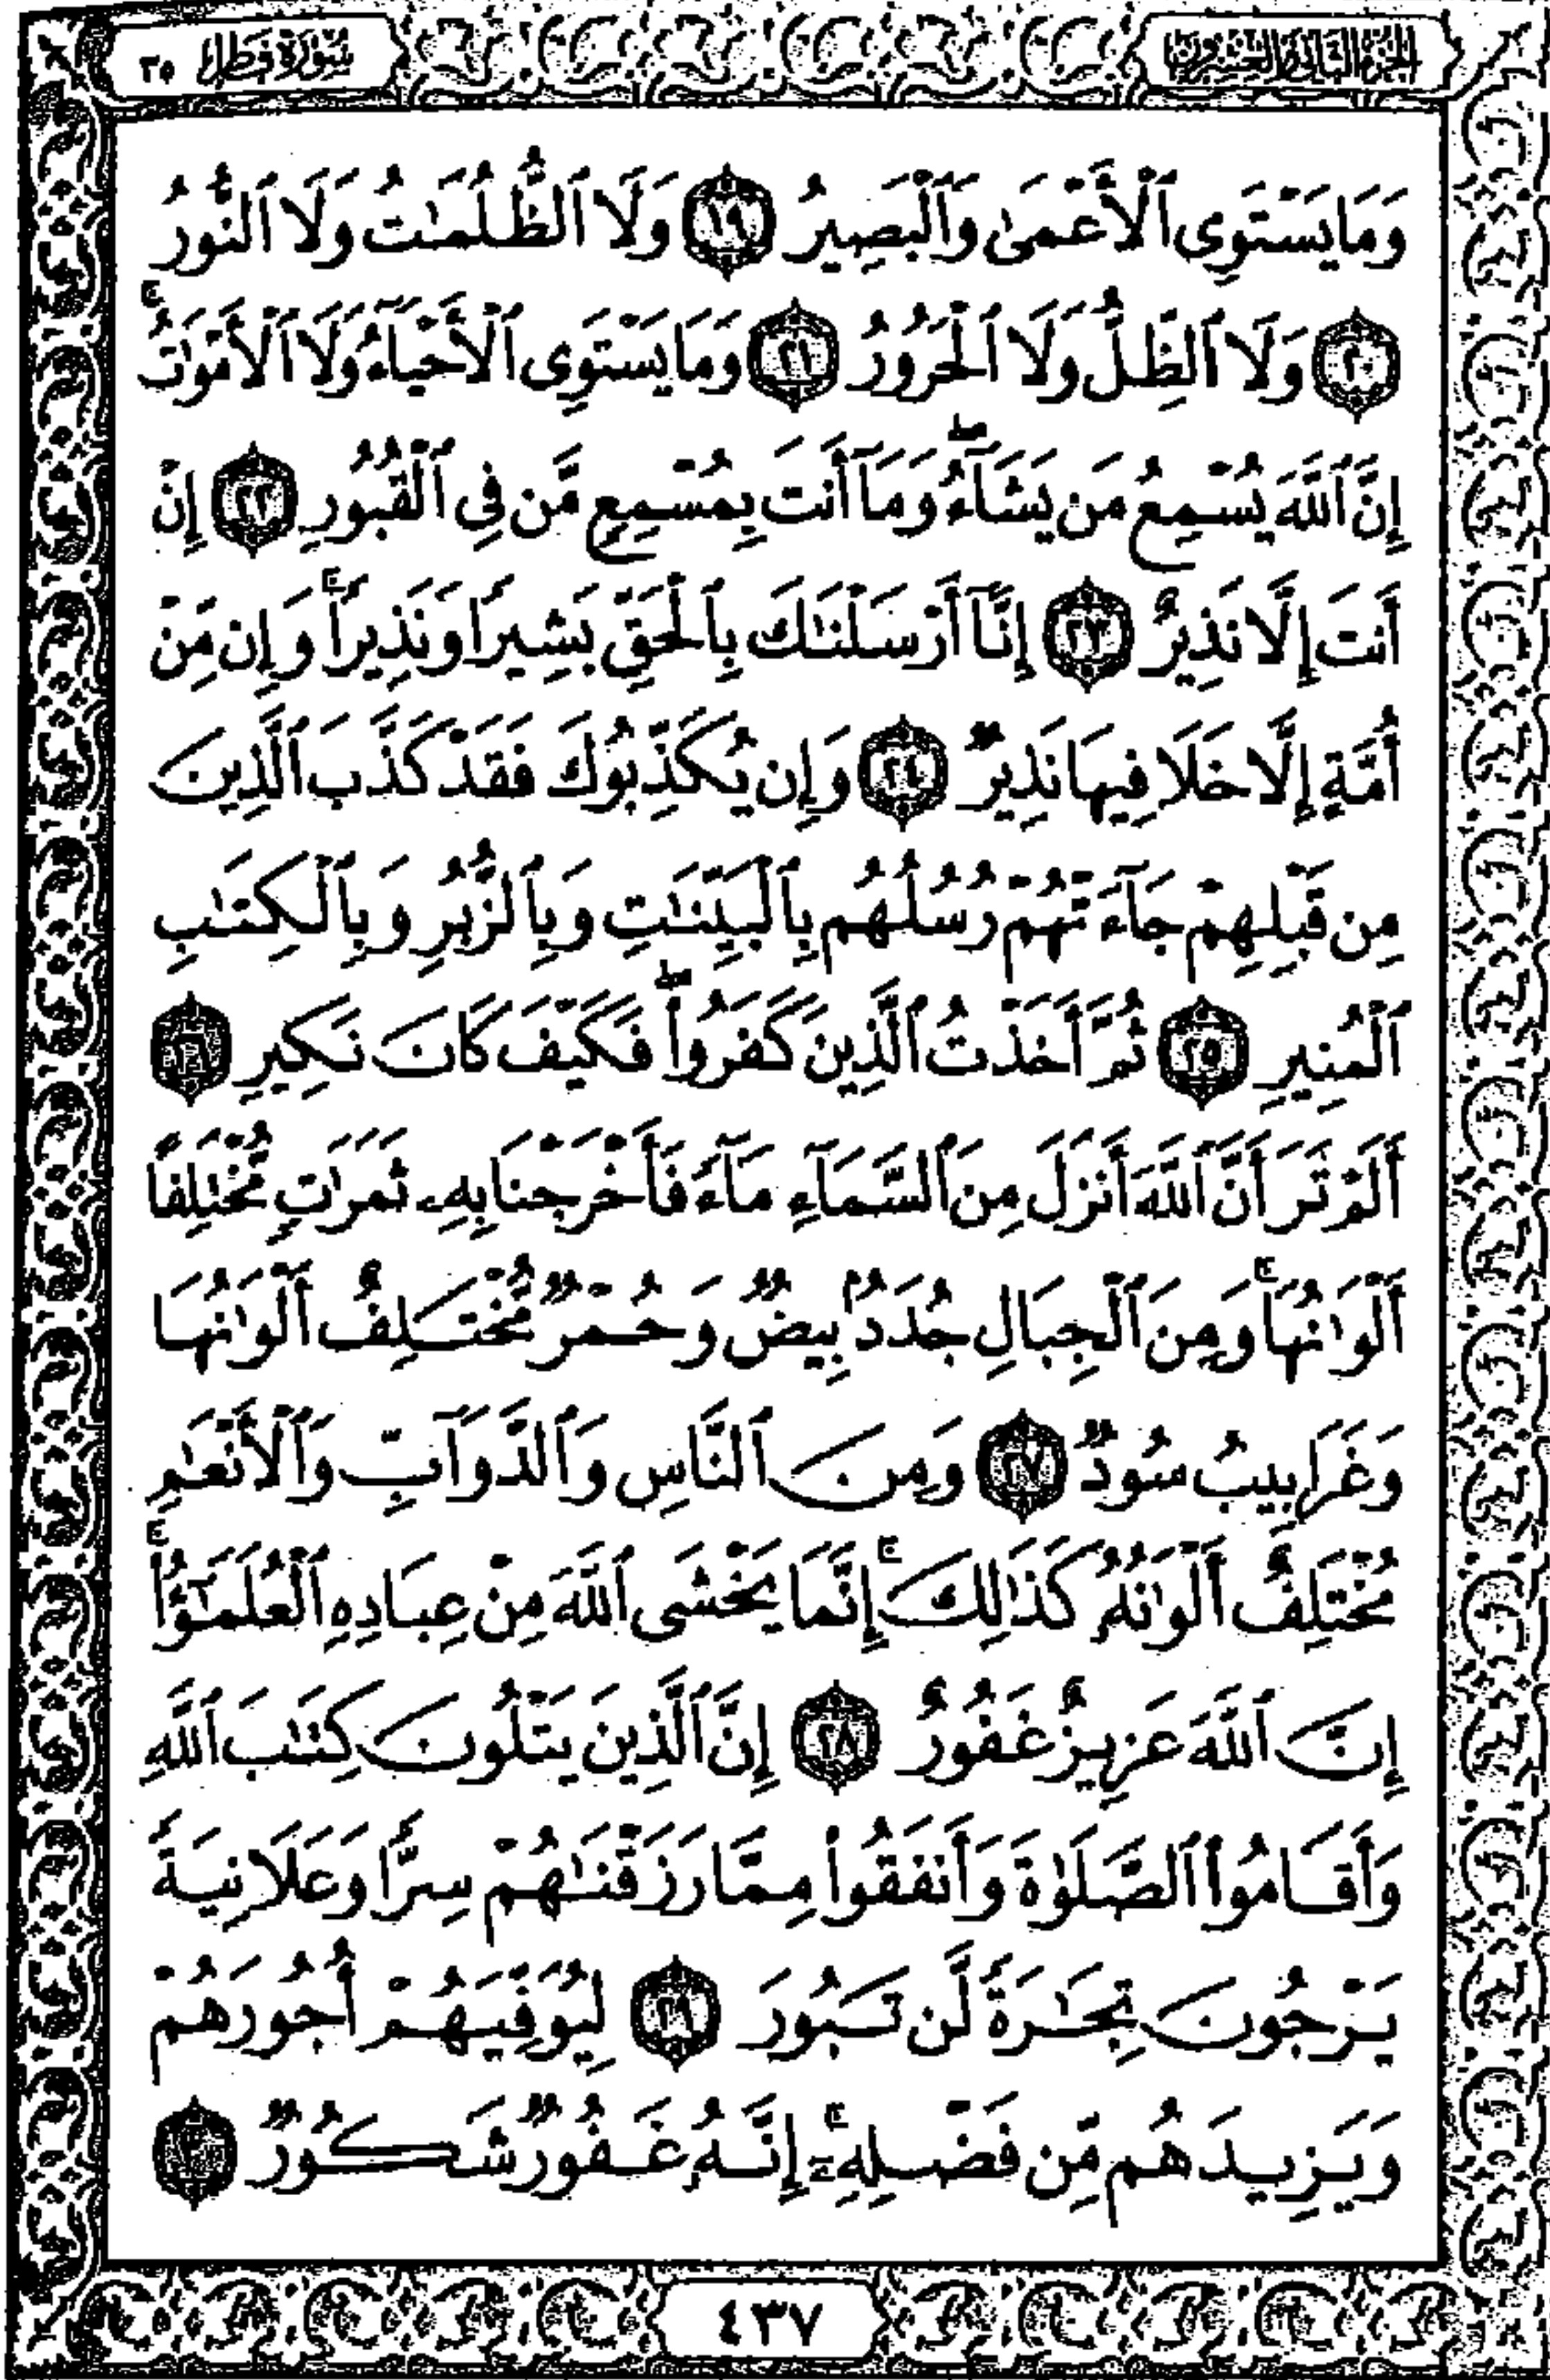 الجزء الثاني والعشرون
سورة فطر ٣٥
وَمَا يَسْتَوِى ٱلْأَعْمَىٰ وَٱلْبَصِيرُ ١٩ وَلَا ٱلظُّلُمَـٰتُ وَلَا ٱلنُّورُ
٢٠ وَلَا ٱلظِّلُّ وَلَا ٱلْحَرُورُ ٢١ وَمَا يَسْتَوِى ٱلْأَحْيَآءُ وَلَا ٱلْأَمْوَٰتُ ۚ
إِنَّ ٱللَّهَ يُسْمِعُ مَن يَشَآءُ ۖ وَمَآ أَنتَ بِمُسْمِعٍ مَّن فِى ٱلْقُبُورِ ٢٢ إِنْ
أَنتَ إِلَّا نَذِيرٌ ٢٣ إِنَّآ أَرْسَلْنَـٰكَ بِٱلْحَقِّ بَشِيرًا وَنَذِيرًا ۚ وَإِن مِّنْ
أُمَّةٍ إِلَّا خَلَا فِيهَا نَذِيرٌ ٢٤ وَإِن يُكَذِّبُوكَ فَقَدْ كَذَّبَ ٱلَّذِينَ
مِن قَبْلِهِمْ جَآءَتْهُمْ رُسُلُهُم بِٱلْبَيِّنَـٰتِ وَبِٱلزُّبُرِ وَبِٱلْكِتَـٰبِ
ٱلْمُنِيرِ ٢٥ ثُمَّ أَخَذْتُ ٱلَّذِينَ كَفَرُوا۟ ۖ فَكَيْفَ كَانَ نَكِيرِ ٢٦
أَلَمْ تَرَ أَنَّ ٱللَّهَ أَنزَلَ مِنَ ٱلسَّمَآءِ مَآءً فَأَخْرَجْنَا بِهِۦ ثَمَرَٰتٍ مُّخْتَلِفًا
أَلْوَٰنُهَا ۚ وَمِنَ ٱلْجِبَالِ جُدَدٌۢ بِيضٌ وَحُمْرٌ مُّخْتَلِفٌ أَلْوَٰنُهَا
وَغَرَابِيبُ سُودٌ ٢٧ وَمِنَ ٱلنَّاسِ وَٱلدَّوَآبِّ وَٱلْأَنْعَـٰمِ
مُخْتَلِفٌ أَلْوَٰنُهُۥ كَذَٰلِكَ ۗ إِنَّمَا يَخْشَى ٱللَّهَ مِنْ عِبَادِهِ ٱلْعُلَمَـٰٓؤُا۟ ۗ
إِنَّ ٱللَّهَ عَزِيزٌ غَفُورٌ ٢٨ إِنَّ ٱلَّذِينَ يَتْلُونَ كِتَـٰبَ ٱللَّهِ
وَأَقَامُوا۟ ٱلصَّلَوٰةَ وَأَنفَقُوا۟ مِمَّا رَزَقْنَـٰهُمْ سِرًّا وَعَلَانِيَةً
يَرْجُونَ تِجَـٰرَةً لَّن تَبُورَ ٢٩ لِيُوَفِّيَهُمْ أُجُورَهُمْ
وَيَزِيدَهُم مِّن فَضْلِهِۦٓ ۚ إِنَّهُۥ غَفُورٌ شَكُورٌ ٣٠
٤٣٧